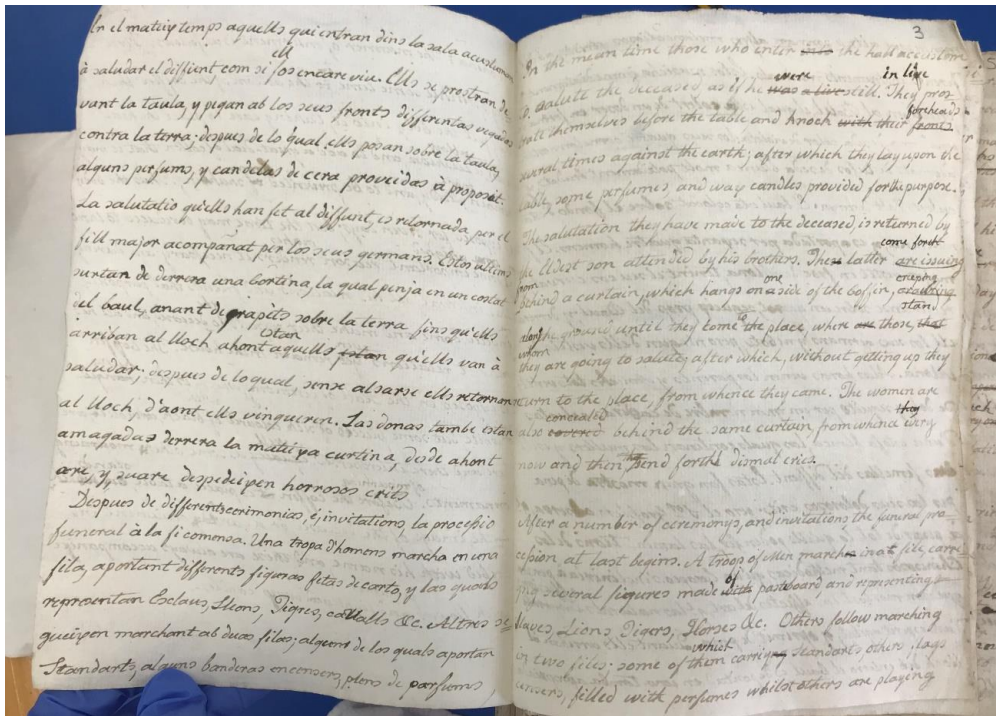 In el mateiy temps aquells qui entran dins la sala acostuman
ell
à saludar el diffunt com si fos encare viu. Ells se prostran de
vant la taula, y pegan ab los seus fronts differentas vegadas
contra la terra; despues de lo qual ells posan sobre la taula,
alguns perfums, y candelas de cera proveidas à proposit.
La salutatio qu'ells han fet al diffunt, es retornada per el
fill major acompañat per los seus germans. Estos ultims
surtan de derrera una Cortina, la qual penja en un costat
el baul, anant de grapats sobre la terra fins qu'ells
estan
arriban al lloch ahont aquells estan qu'ells van à
saludar; despues de lo qual, sense alsarse ells retornan
al lloch, d'aont ells vingueren. Las donas tambe estan
amagadas derrera la mateiya curtina, desde ahont
are, y suare despedeiyen horrosos crits
Despues de differents cerimonias, é, invitations, la processio
funeral à la fi comensa. Una tropa d'homens marcha en una
fila, aportant differents figuras fetas de carto, y las quals
representan Esclaus, Lleons, Tigres, cavalls &c. Altres se
gueiyen marchant ab duas filas; alguns de los quals aportan
Standarts, alguns banderas encensers, plens de parfums,
3
In the mean time those who enter into the hall accustome
were in live
to salute the deceased as if he was a live still. They pros
foreheads
trate themselves before the table and knoch with their fronts
several times against the earth; after which they lay upon the
table, some perfumes and wax candles provided for the purpose.
The salutation they have made to the deceased, is returned by
come forth
the Eldest son attended by his brothers. These latter are issuing
from one creeping
behind a curtain, which hangs on a side of the coffin,
stand
along the ground until they come to the place, where are those, that
whom
they are going to salute; after which, without getting up they
return to the place, from whence they came. The women are
concealed they
also covered behind the same curtain, from whence every
now and then send forth dismal cries.
After a number of ceremonys, and invitations the funeral pro
cession at last begins. A troop of Men march in a file, carri
of
ing several figures made with pasteboard and representing
Slaves, Lions Tigers, Horses &c. Others follow marching
which
in two files; some of them carrying standarts others, flags
censers, filled with perfumes whilst others are playing